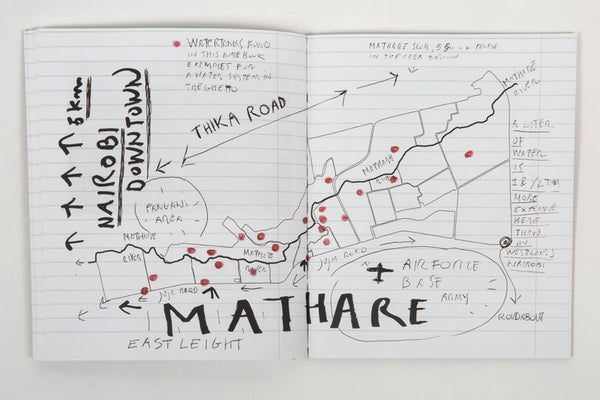 WATERTANKS FOUND
IN THIS NOTEBOOK
EXAMPLES FOR
A WATER SYSTEM IN
THE GHETTO
MATHARE SLUM, 5
PEOPLE
IN THE AREA BELOW
MATHARE
RIVER
5 km
NAIROBI
DOWNTOWN
THIKA ROAD
PANGANI
AREA
MATHARE
RIVER
MATHARE
RIVER
MATHARE
RIVER
JUJA ROAD
JUJA ROAD
A LITER
OF
WATER
IS
1 & 1/2
MORE
EXPENSE
HERE
THAN
IN
WESTLANDS
NAIROBI
AIRFORCE
BASE
ARMY
ROUNDABOUT
MATHARE
EAST LEIGHT